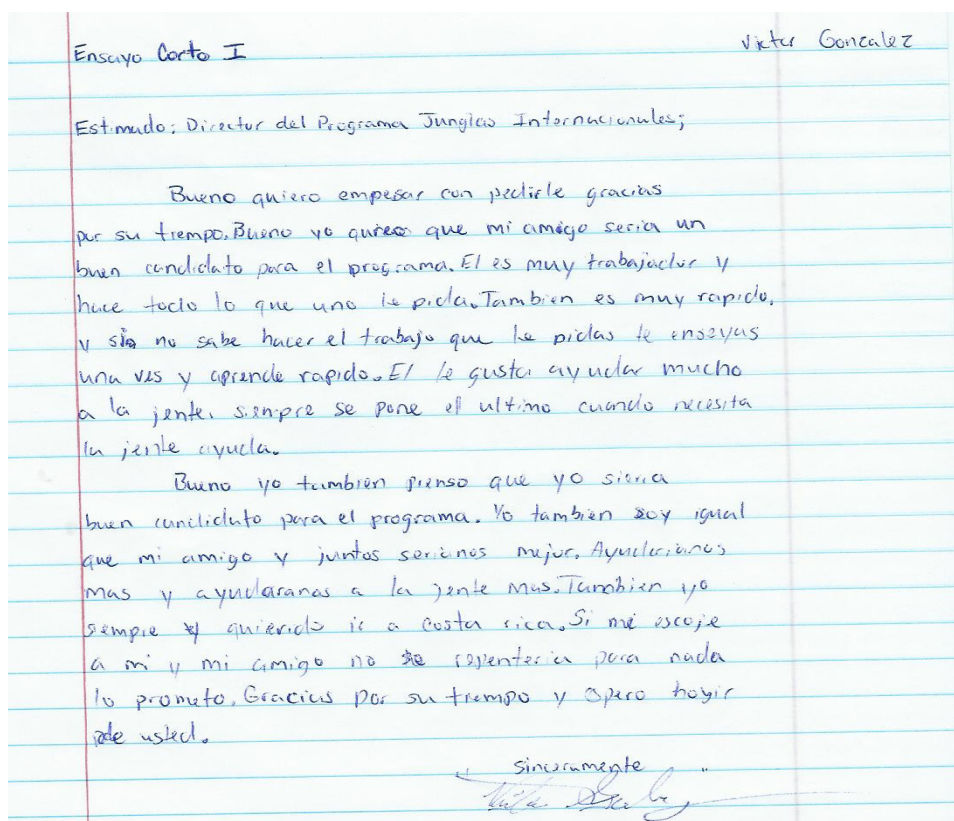 Ensayo Corto I Victor Gonzalez
Estimado: Director del Programa Junglas Internacionales;
Bueno quiero empesar con pedirle gracias
por su tiempo. Bueno yo que mi amigo seria un
buen candidato para el programa. El es muy trabajador y
hace todo lo que uno le pida. Tambien es muy rapido.
y si no sabe hacer el trabajo que le pidas le ensevas
una ves y aprende rapido. El le gusta ayudar mucho
a la jente. siempre se pone el ultimo cuando necesita
la jente ayuda.
Bueno yo tambien pienso que yo
buen candidato para el programa. Yo tambien soy igual
que mi amigo y juntos serianos mejor. Ayudarianos
mas y ayudaranas a la jente mas. Tambien yo
sempre quierido ir a costa rica. Si me escoje
a mi y mi amigo no se repenteria para nada
lo prometo. Gracias por su tiempo y opero hoyir
de usted.
sinceramente